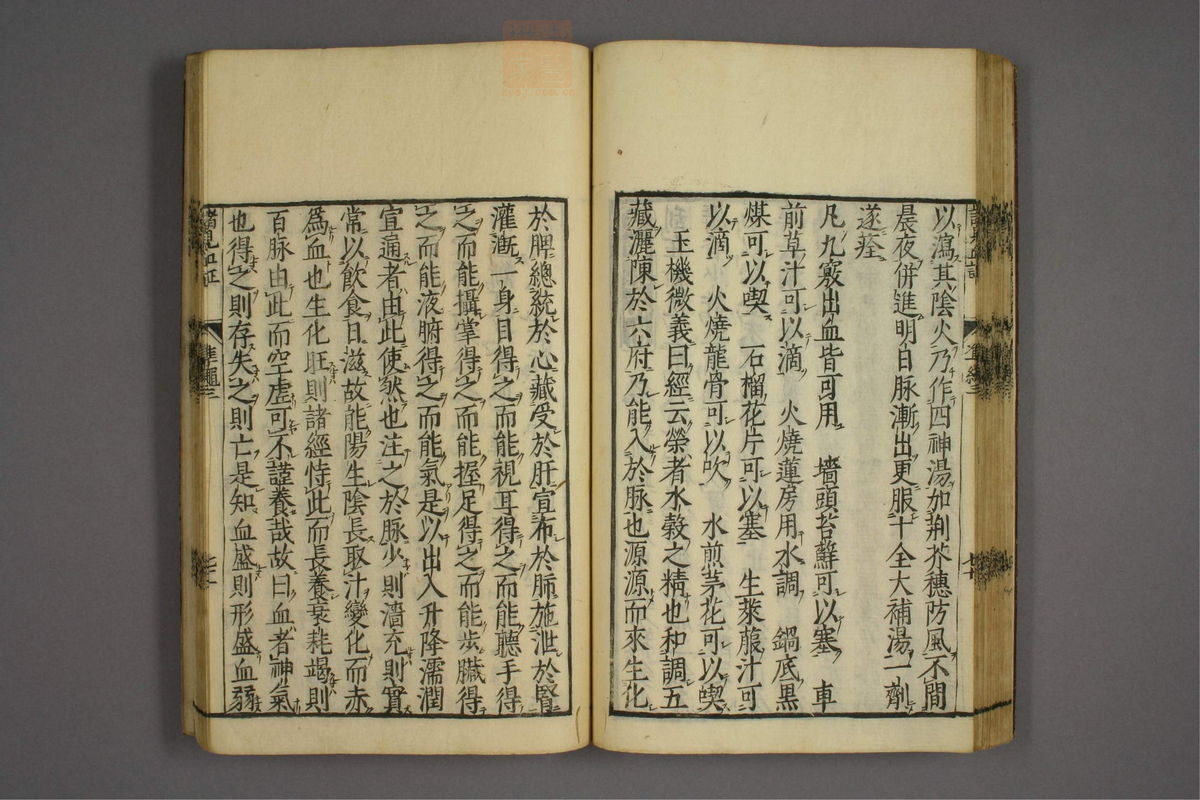 以瀉其陰火乃作四神湯加荆芥穗防風不間
晨夜併進明日脉漸出更服十全大補湯一劑
遂痊
凡九竅出血皆可用　墻頭苔蘚可以塞　車
前草汁可以滴　火燒蓮房用水調　鍋底黑
煤可以喫　石榴花片可以塞　生萊菔汁可
以滴　火燒龍骨可以吹　水煎茅花可以喫
玉機微義曰經云榮者水穀之精也和調五
藏灑陳於六府乃能入於脉也源源而來生化
於脾總統於心藏受於肝宣布於肺施泄於腎
灌漑一身目得之而能視耳得之而能聽手得
之而能攝掌得之而能握足得之而能步臟得
之而能液腑得之而能氣是以出入升降濡潤
宣通者由此使然也注之於脉少則濇充則實
常以飲食日滋故能陽生陰長取汁變化而赤
爲血也生化旺則諸經恃此而長養衰耗竭則
百脉由此而空虛可不謹養哉故曰血者神氣
也得之則存失之則亡是知血盛則形盛血弱
諸見血証
準繩三